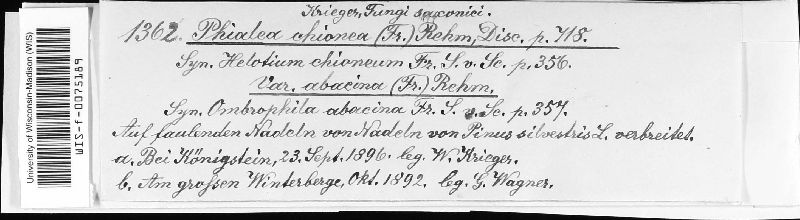 Krieger, Fungi saxonici.
1362. Phialea chionea (Fr.) Rehm, Disc. p. 718.
Syn. Helotium chioneum Fr. S. v. Sc. p. 356.
Var. abacina (Fr.) Rehm.
Syn. Ombrophila abacina Fr. S. v. Sc. p. 357.
Auf faulenden Nadeln von Nadeln von Pinus silvestris L. verbreitet.
a. Bei Königstein, 23. Sept. 1896. leg. W. Krieger.
b. Am grossen Winterberge, Okt. 1892. leg. G. Wagner.
University of Wisconsin-Madison (WIS)
WIS-f-0075189